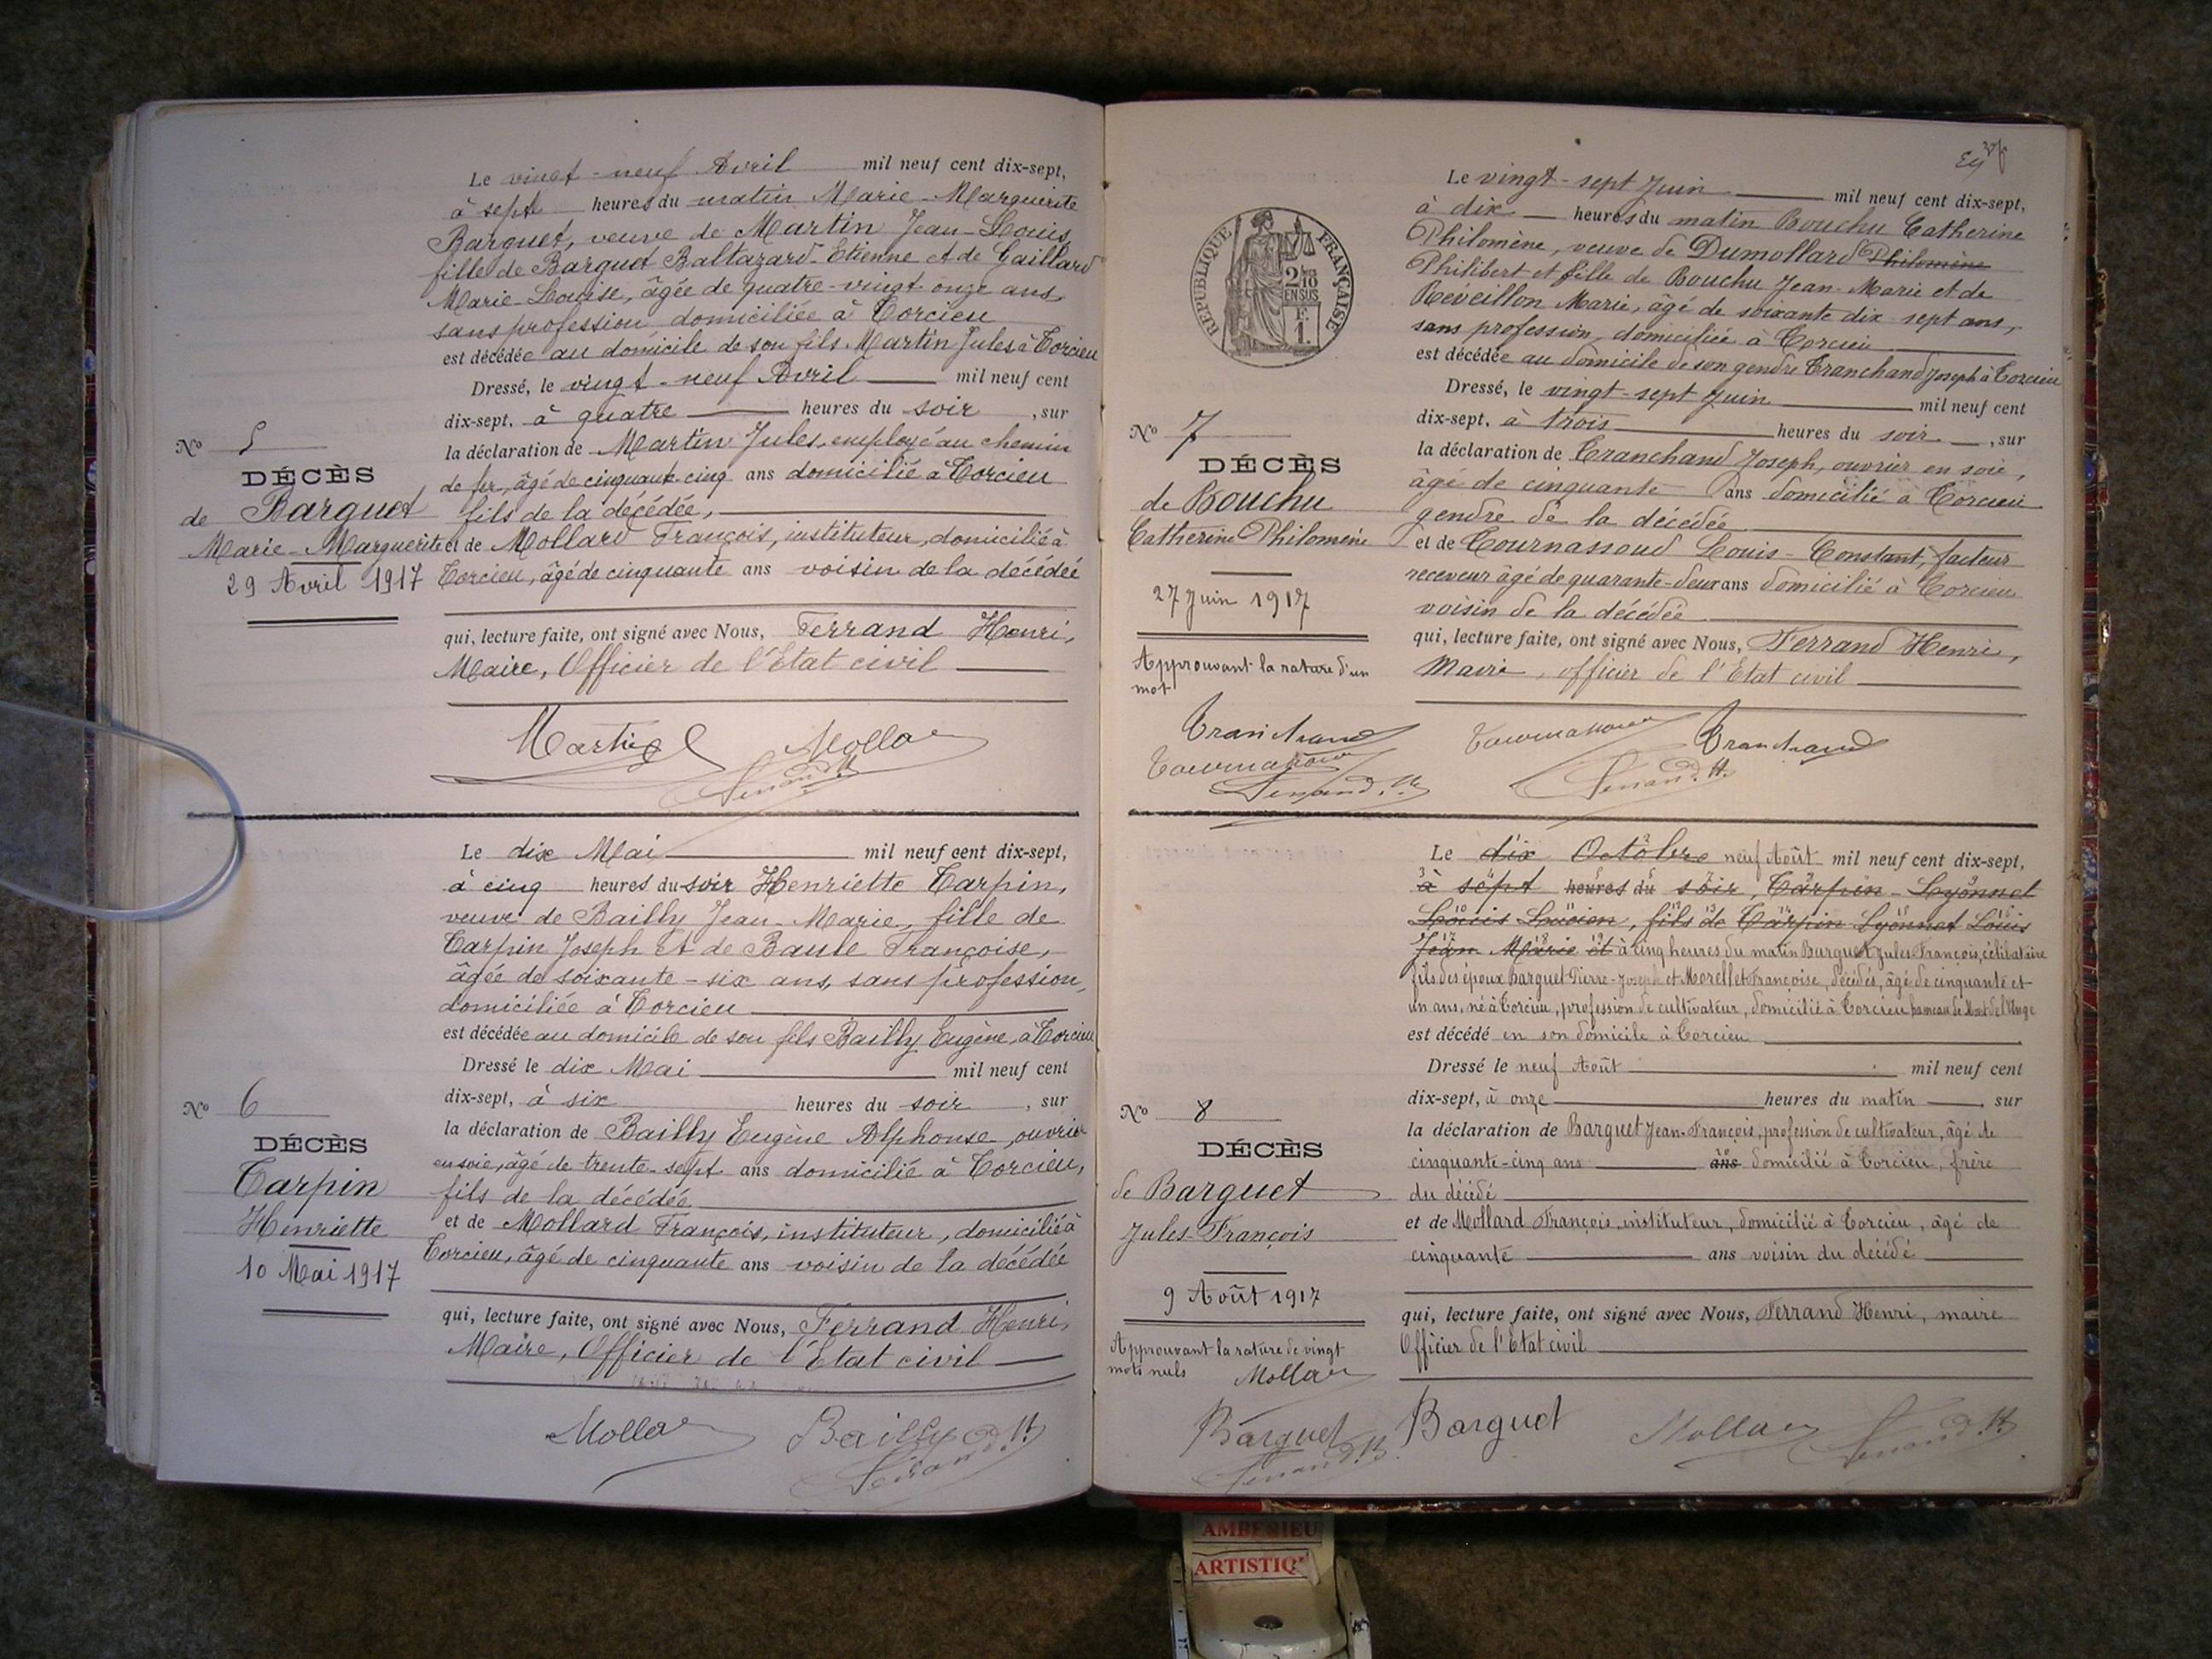 Le vingt-neuf Avril mil neuf cent dix-sept,
à sept heures du matin Marie-Marguerite
Barguet, veuve de Martin Jean-Louis,
fille de Barguet Baltazard-Etienne et de Gaillard
Marie-Louise, âgée de quatre-vingt-onze ans,
sans profession domiciliée à Torcieu
est décédée au domicile de son fils Martin Jules à Torcieu
Dressé, le vingt-neuf Avril mil neuf cent
dix-sept, à quatre heures du soir, sur
la déclaration de Martin Jules, employé au chemin
de fer, âgé de cinquante-cinq ans domicilié à Torcieu
fils de la décédée,
et de Mollard François, instituteur, domicilié à
Torcieu, âgé de cinquante ans voisin de la décédée
qui, lecture faite, ont signé avec Nous, Ferrand Henri,
Maire, Officier de l'Etat civil
N° 5
DÉCÈS
de Barguet
Marie-Marguerite
29 Avril 1917
Martin J Mollard
Ferrand. H
Le dix Mai mil neuf cent dix-sept,
à cinq heures du soir Henriette Tarpin,
veuve de Bailly Jean-Marie, fille de
Tarpin Joseph et de Baule Françoise,
âgée de soixante-six ans, sans profession,
domiciliée à Torcieu
est décédée au domicile de son fils Bailly Eugène, à Torcieu
Dressé le dix Mai mil neuf cent
dix-sept, à six heures du soir, sur
la déclaration de Bailly Eugène Alphonse, ouvrier
en soie, âgé de trente-sept ans domicilié à Torcieu,
fils de la décédée
et de Mollard François, instituteur, domicilié à
Torcieu, âgé de cinquante ans voisin de la décédée
qui, lecture faite, ont signé avec Nous, Ferrand Henri,
Maire, Officier de l'Etat civil
N° 6
DÉCÈS
Tarpin
Henriette
10 Mai 1917
Mollard Bailly
Ferrand. H
RÉPUBLIQUE FRANÇAISE
2/10
EN SUS
F.
1.
Le vingt-sept Juin mil neuf cent dix-sept,
à dix heures du matin Bouchu Catherine
Philomène, veuve de Dumollard Philomène
Philibert et fille de Bouchu Jean-Marie et de
Réveillon Marie, âgé de soixante dix sept ans,
sans profession, domiciliée à Torcieu
est décédée au domicile de son gendre Tranchand Joseph à Torcieu
Dressé, le vingt-sept Juin mil neuf cent
dix-sept, à trois heures du soir, sur
la déclaration de Tranchand Joseph, ouvrier en soie,
âgé de cinquante ans domicilié à Torcieu
gendre de la décédée
et de Tournassoud Louis-Constant, facteur
receveur âgé de quarante-deux ans domicilié à Torcieu
voisin de la décédée
qui, lecture faite, ont signé avec Nous, Ferrand Henri,
Maire, officier de l'Etat civil
N° 7
DÉCÈS
de Bouchu
Catherine Philomène
27 Juin 1917
Approuvant la rature d'un
mot
Tranchand Tournassoud Tranchand
Tournassoud Ferrand. H.
Ferrand. H
Le dix Octobre neuf Août mil neuf cent dix-sept,
à sept heures du soir, Tarpin-Lyonnet
Louis Lucien, fils de Tarpin-Lyonnet Louis
Jean Marie et à cinq heures du matin Barguet Jules-François, célibataire
fils des époux Barguet Pierre-Joseph et Morellet Françoise, décédés, âgé de cinquante et
un ans, né à Torcieu, profession de cultivateur, domicilié à Torcieu hameau de Mont de l'Ange
est décédé en son domicile à Torcieu
Dressé le neuf Août mil neuf cent
dix-sept, à onze heures du matin, sur
la déclaration de Barguet Jean-François, profession de cultivateur, âgé de
cinquante-cinq ans ans domicilié à Torcieu, frère
du décédé
et de Mollard François, instituteur, domicilié à Torcieu, âgé de
cinquante ans voisin du décédé
qui, lecture faite, ont signé avec Nous, Ferrand Henri, maire
Officier de l'Etat civil
N° 8
DÉCÈS
de Barguet
Jules-François
9 Août 1917
Approuvant la rature de vingt
mots nuls Mollard
Barguet Barguet Mollard Ferrand. H
Ferrand. H
AMBERIEU
ARTISTIQ